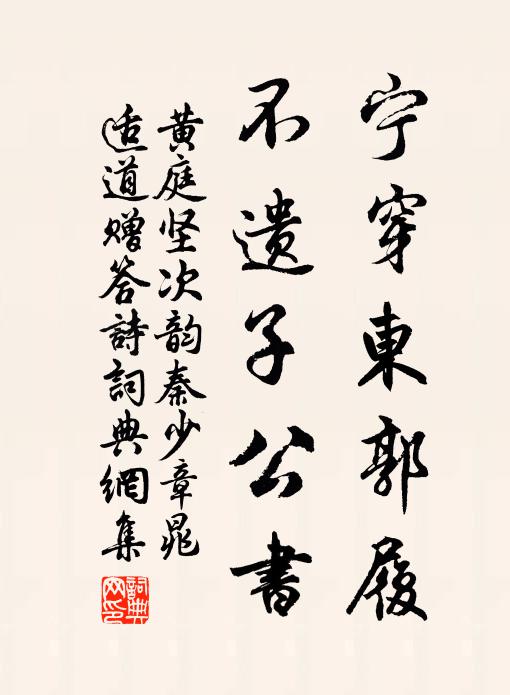 宁穿東郭履
不遺子公書
黄庭坚次韵秦少章晁
适道赠答詩詞典網集
詞典网印